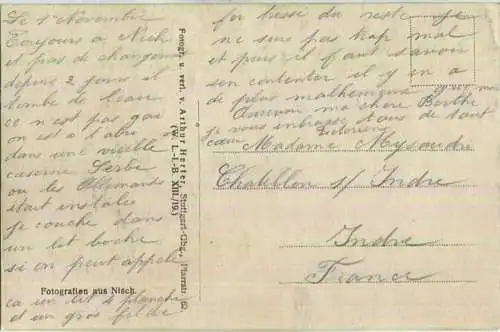 Le 1er Novembre
Toujours a Nich
et pas de changement
depuis 2 jours il
tombe de l'eau
ce n'est pas gai
on est a l'abri
dans une vieille
caserne Serbe
ou les Allemands
étaient installés
je couche dans
un lit boche
si on peut appeler
ça un lit 4 planches
et un gros
Fotografien aus Nisch.
Fotogr. u. verl. v. Arthur Herter, Stuttgart-Gbg., Pfarrstr. 62
(W. I.-I.-B. XIII/19.)
du reste je
ne suis pas trop mal
et puis il faut savoir
s'en contenter il y en a
de plus malheureux que moi
ma chère Berthe
je vous embrasse tous de tout
cœur
Madame
Chatillon s/ Indre
Indre
France